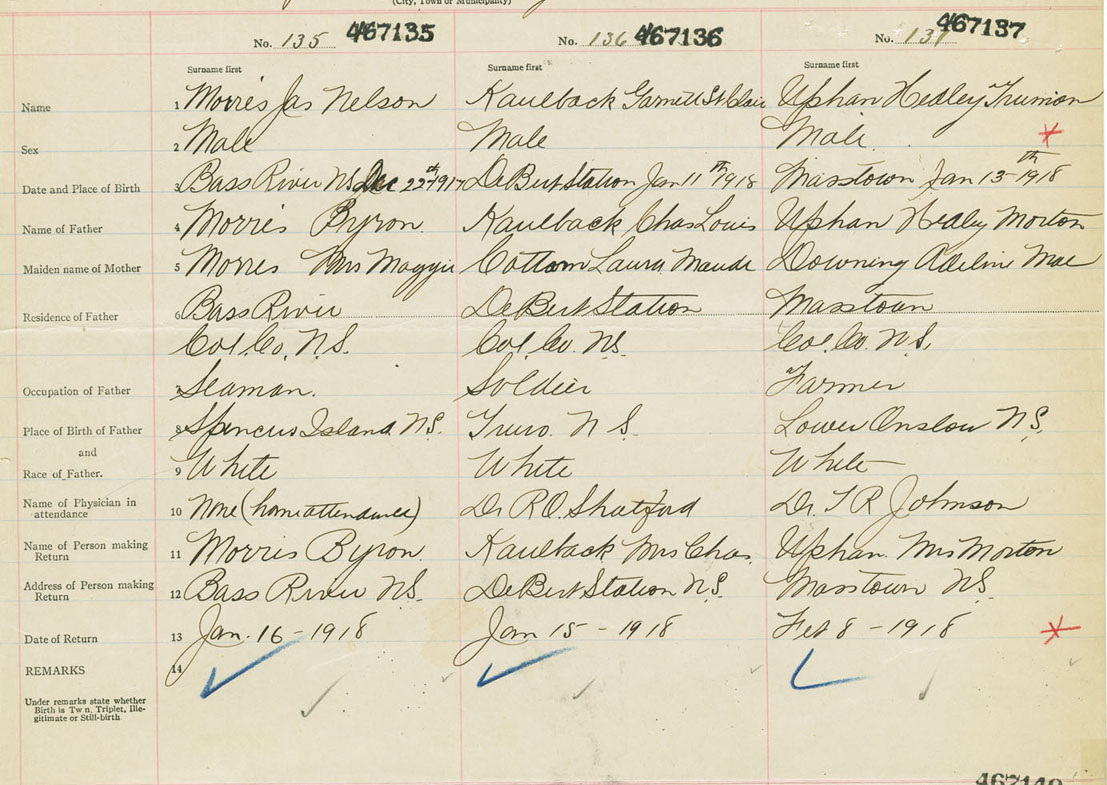 (City, Town or Municipality)
No. 135 467135 No. 136 467136 No. 137 467137
Surname first Surname first Surname first
Name 1 Morris Jas Nelson Kaulback Garnett St Clair Uphan Hedley Truman
Sex 2 Male Male Male
Date and Place of Birth 3 Bass River NS Dec 22nd 1917 DeBert Station Jan 11th 1918 Masstown Jan 13th 1918
Name of Father 4 Morris Byron. Kaulback Chas Louis Uphan Hedley Morton
Maiden name of Mother 5 Morris Mrs Maggie Cottam Laura Maude Downing Adeline Mae
Residence of Father 6 Bass River DeBert Station Masstown
Col. Co. N.S. Col. Co. N.S. Col. Co. N.S.
Occupation of Father 7 Seaman. Soldier Farmer
Place of Birth of Father 8 Spencers Island N.S. Truro. N S. Lower Onslow N.S.
and
Race of Father. 9 White White White
Name of Physician in
attendance 10 None (home attendance) Dr R.O. Shatford Dr. T R Johnson
Name of Person making
Return 11 Morris Byron. Kaulback Mrs Chas. Uphan. Mrs Morton
Address of Person making
Return 12 Bass River N.S. DeBert Station N.S. Masstown N.S.
Date of Return 13 Jan. 16-1918 Jan 15-1918 Feb 8-1918
REMARKS 14
Under remarks state whether
Birth is Twn, Triplet, Ille-
gitimate or Still-birth.
467140